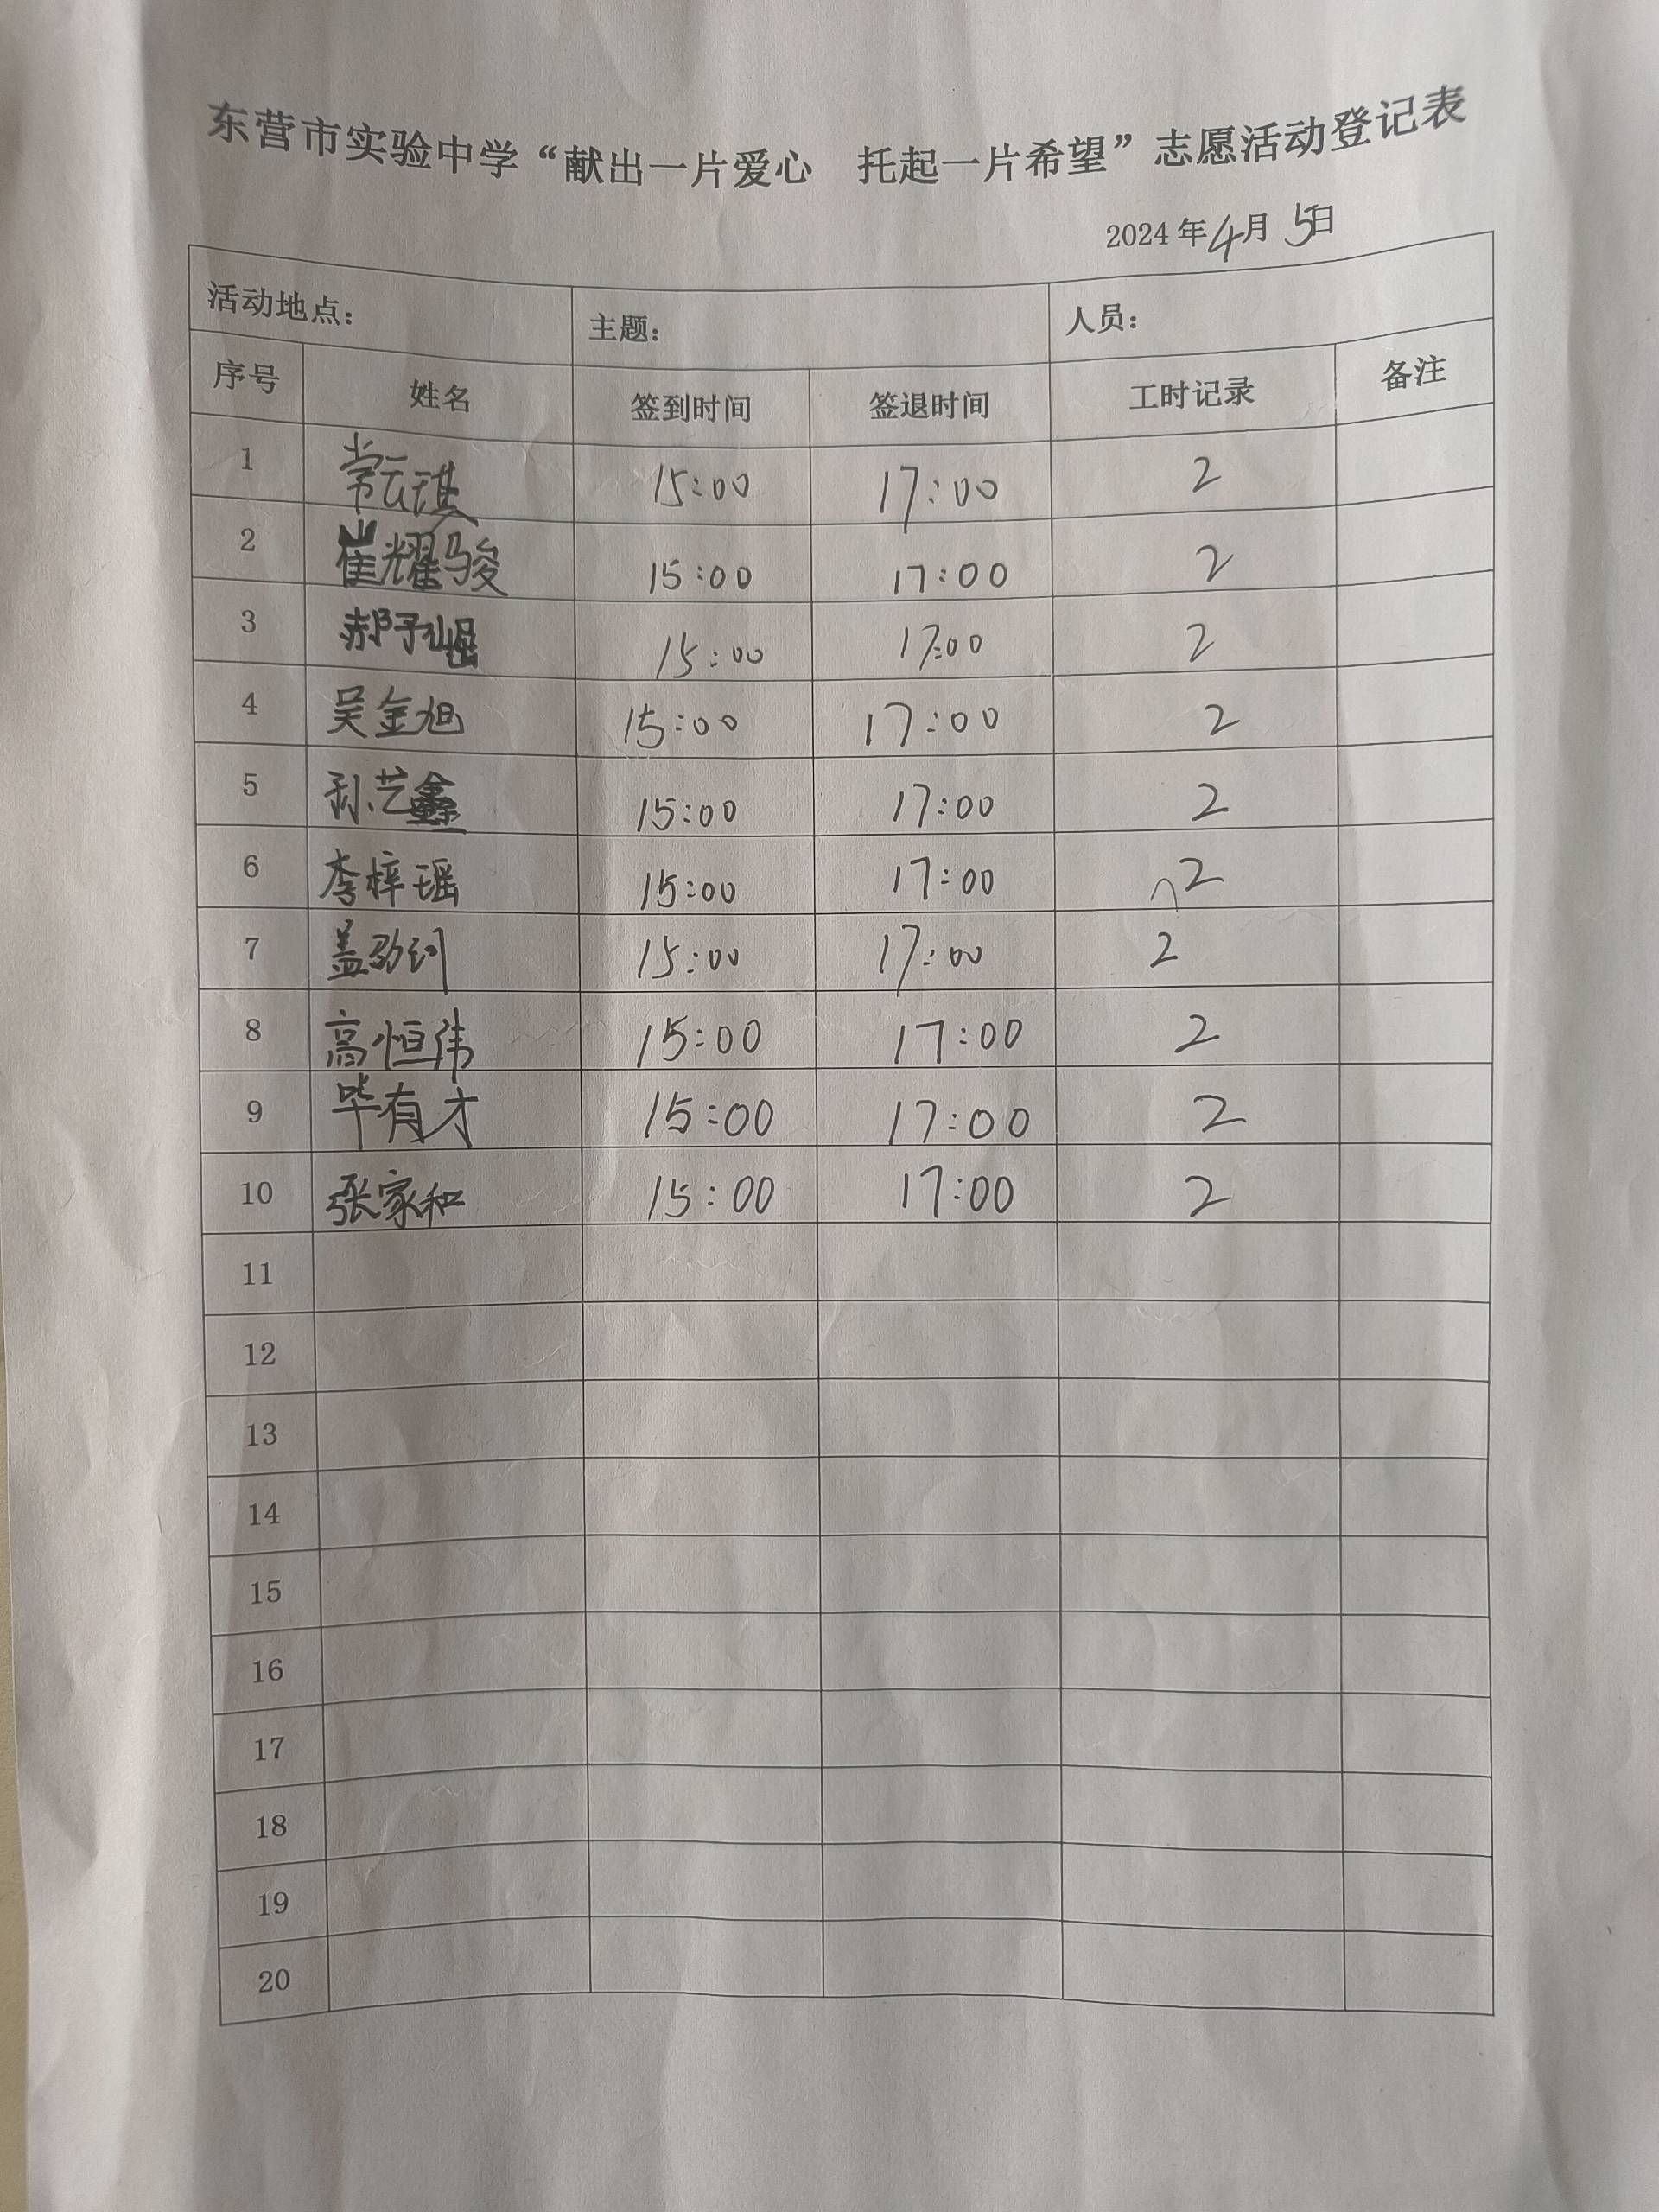 东营市实验中学“献出一片爱心 托起一片希望”志愿活动登记表
2024年4月5日
活动地点： 主题： 人员：
序号 姓名 签到时间 签退时间 工时记录 备注
1 常云琪 15:00 17:00 2
2 崔耀骏 15:00 17:00 2
3 郝子崛 15:00 17:00 2
4 吴金旭 15:00 17:00 2
5 孙艺鑫 15:00 17:00 2
6 李梓瑶 15:00 17:00 2
7 盖 15:00 17:00 2
8 高恒伟 15:00 17:00 2
9 毕有才 15:00 17:00 2
10 张家和 15:00 17:00 2
11
12
13
14
15
16
17
18
19
20